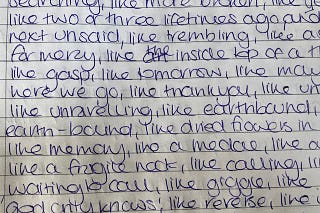 searching, like more broken, like
like two or three lifetimes ago and
next unsaid, like trembling, like a
for mercy, like the inside lip of a
like gasp, like tomorrow, like
here we go, like thankyou, like
like unravelling, like earthbound,
earth-bound, like dried flowers in
like memory, like a medal, like a
like a fragile neck, like calling, li
waiting to call, like giggle, like
God only knows, like reverse, like